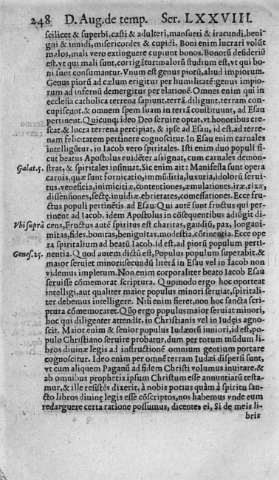 248 D. Aug. de temp. Ser. LXXVIII.
scilicet & superbi, casti & adulteri, mansueti & iracundi, beni-
gni & inuidi, misericordes & cupidi. Boni enim lucrari volūt
malos, mali vero extinguere cupiunt bonos. Bonorū desideriū
est, vt qui mali sunt, corrigātur: malorū studium est, vt qui bo-
ni sunt consumantur. Vnum est genus piorū, aliud impiorum.
Genus piorū ad cælum erigitur per humilitatē: genus impio-
rum ad infernū demergitur per elationē. Omnes enim qui in
ecclesia catholica terrena sapiunt, terrā diligunt, terram con-
cupiscunt, & omnem spem suam in terra constituunt, ad Esau
pertinent. Quicunq; ideo Deo seruire optat, vt honoribus cre-
scat, & lucra terrena percipiat, & ipse ad Esau, id est, ad terre-
nam felicitatem pertinere cognoscitur. In Esau enim carnales
intelligūtur, in Iacob vero spiritales. Isti etiam duo populi
beatus Apostolus euidēter assignat, cum carnales demon-
Galat. 5. strat, & spiritales insinuat. Sic enim ait: Manifesta sunt opera
carnis, quæ sunt fornicatio, immūditia, luxuria, idolorū serui-
tus, veneficia, inimicitiæ, contentiones, æmulationes, iræ, rixæ,
dissensiones, sectæ, inuidiæ, ebrietates, comessationes. Ecce fru-
ctus populi pertinētis ad Esau. Qui autē sunt fructus qui per-
tinent ad Iacob? idem Apostolus in cōsequentibus adiūgit di-
Vbi suprà cens, Fructus autē spiritus est charitas, gaudiū, pax, longani-
mitas, fides, bonitas, benignitas, modestia, cōtinentia. Ecce ope
ra spiritalium ad beatū Iacob, id est, ad piorū populum perti-
Genes. 25. nentia. Quod autem dictū est, Populus populum superabit, &
maior seruiet minori: secundū literā in Esau vel in Iacob non
videmus impletum. Non enim corporaliter beato Iacob Esau
seruisse cōmemorat scriptura. Quomodo ergo hoc oporteat
intelligi, aut qualiter maior populus minori seruiat, spiritali-
ter debemus intelligere. Nisi enim fieret, non hoc sancta scri-
ptura cōmemoraret. Quō ergo populus maior seruiat minori,
hoc qui diligenter attendit, in Christianis vel in Iudæis agno-
scit. Maior enim & senior populus Iudæorū iuniori, id est, po-
pulo Christiano seruire probatur, dum per totum mūdum li-
bros diuinæ legis ad instructionē omnium gentium portare
cognoscitur. Ideo enim per omnē terram Iudæi dispersi sunt,
vt cum aliquem Paganū ad fidem Christi volumus inuitare, &
ab omnibus prophetis ipsum Christum esse annuntiatū testa-
mur, & ille resistēs dixerit, à nobis potius quàm à spiritu san-
cto libros diuinæ legis esse cōscriptos, nos habemus vnde eum
redarguere certa ratione possumus, dicentes ei, Si de meis li-
bris